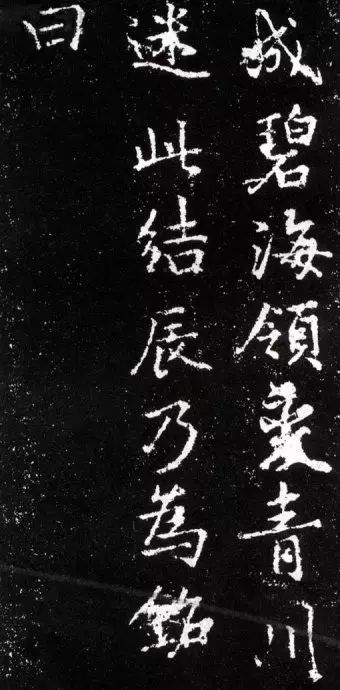 成碧海領變青川
迷此結辰乃為銘
曰